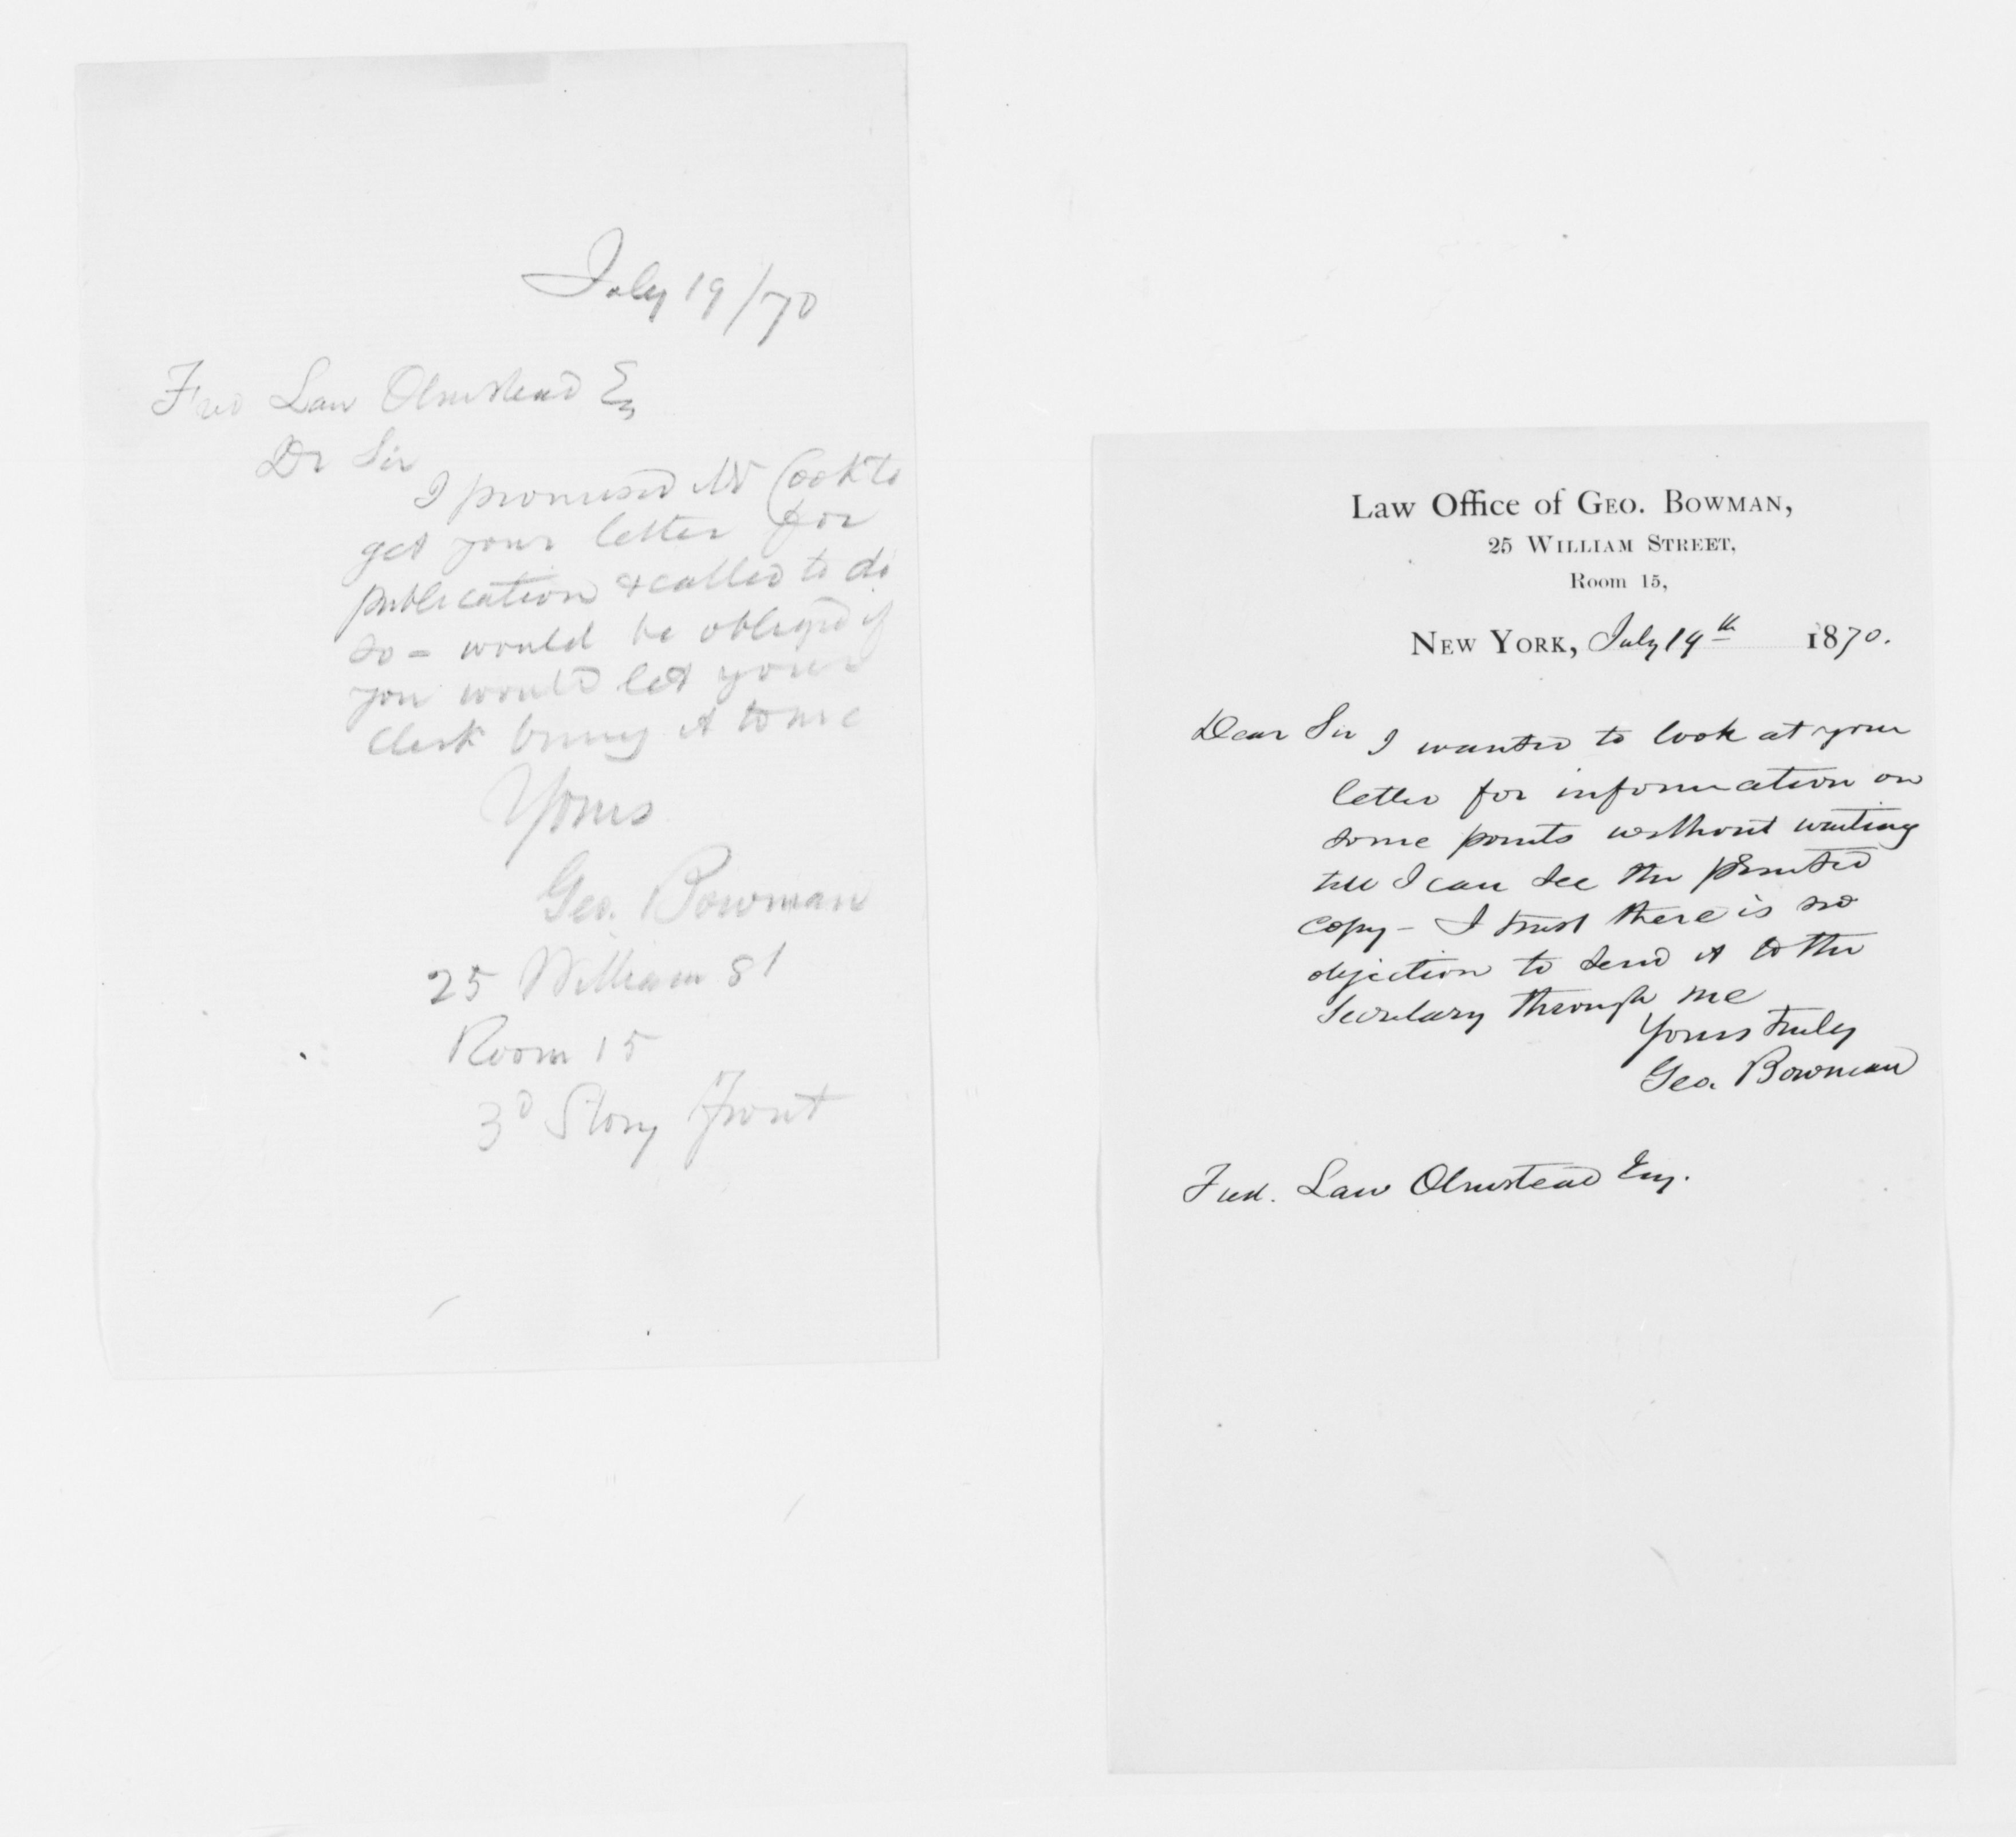 July 19/70
Fred Law Olmstead Esq
Dr Sir
I promised Mr Cook to
get your letter for
publication & called to do
so = would be obliged if
you would let your
clerk bring it to me
Yours
Geo. Bowman
25 William St
Room 15
3d Story Front
Law Office of Geo. Bowman,
25 William Street,
Room 15,
New York, July 19th 1870.
Dear Sir I wanted to look at your
letter for information on
some points without waiting
till I can see the printed
copy - I trust there is no
objection to send it to the
Secretary through me
Yours truly
Geo. Bowman
Fred. Law Olmstead Esq.